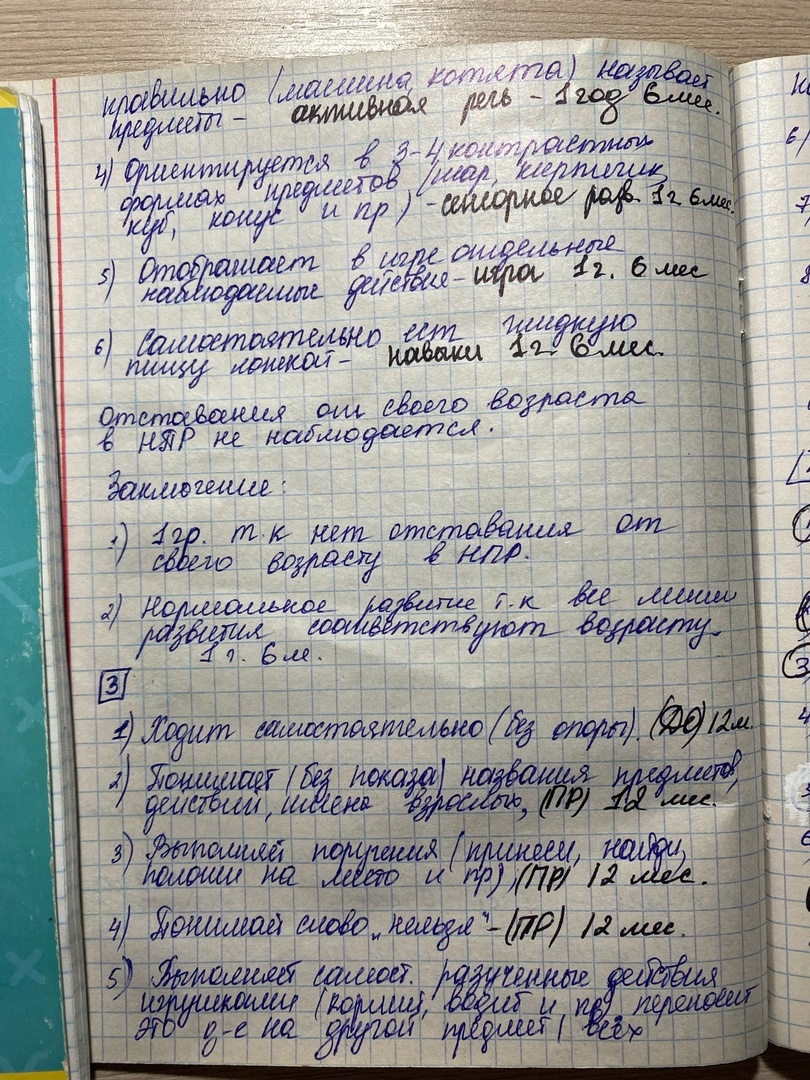 правильно (машина, котята) называет
предметы - активная речь - 1 год 6 мес.
4) Ориентируется в 3-4 контрастных
формах предметов (шар, кирпичик,
куб, конус и пр) - сенсорное разв. 1г 6 мес.
5) Отображает в игре отдельные
наблюдаемые действие - игра 1г. 6 мес
6) Самостоятельно ест жидкую
пищу ложкой - навыки 1г. 6 мес.
Отставания от своего возраста
в НПР не наблюдается.
Заключение:
1) 1 гр. т.к нет отставания от
своего возрасту в НПР.
2) Нормальное развитие т.к все линии
развития соответствуют возрасту
1 г. 6 м.
3
1) Ходит самостоятельно (без опоры). (ДО) 12 м.
2) Понимает (без показа) названия предметов,
действий, имена взрослых, (ПР) 12 мес.
3) Выполняет поручения (принеси, найди,
положи на место и пр), (ПР) 12 мес.
4) Понимай слово „нельзя" - (ПР) 12 мес.
5) Выполняет самост. разученные действия
игрушками (кормит, водит и пр переносит
это д-е на другой предмет) всех